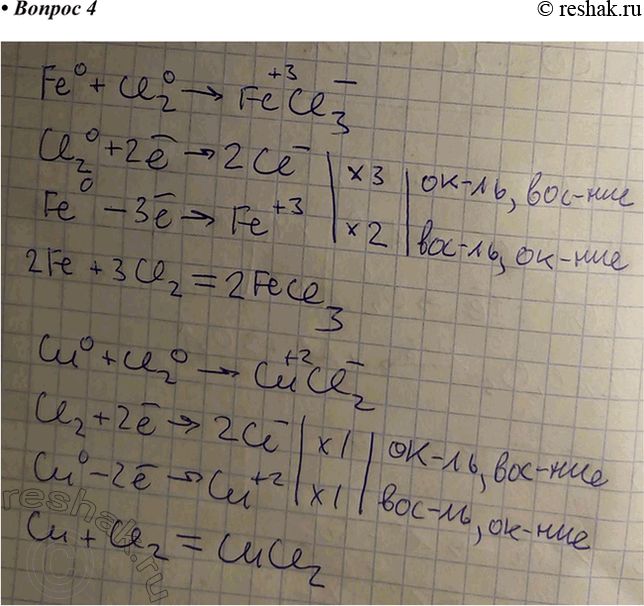 • Вопрос 4
© reshak.ru
Fe⁰ + Cl₂⁰ → Fe⁺³Cl₃⁻
Cl₂⁰ + 2ē → 2Cl⁻ | ×3 | ок-ль, вос-ние
Fe⁰ − 3ē → Fe⁺³ | ×2 | вос-ль, ок-ние
2Fe + 3Cl₂ = 2FeCl₃
Cu⁰ + Cl₂⁰ → Cu⁺²Cl₂⁻
Cl₂ + 2ē → 2Cl⁻ | ×1 | ок-ль, вос-ние
Cu⁰ − 2ē → Cu⁺² | ×1 | вос-ль, ок-ние
Cu + Cl₂ = CuCl₂
reshak.ru